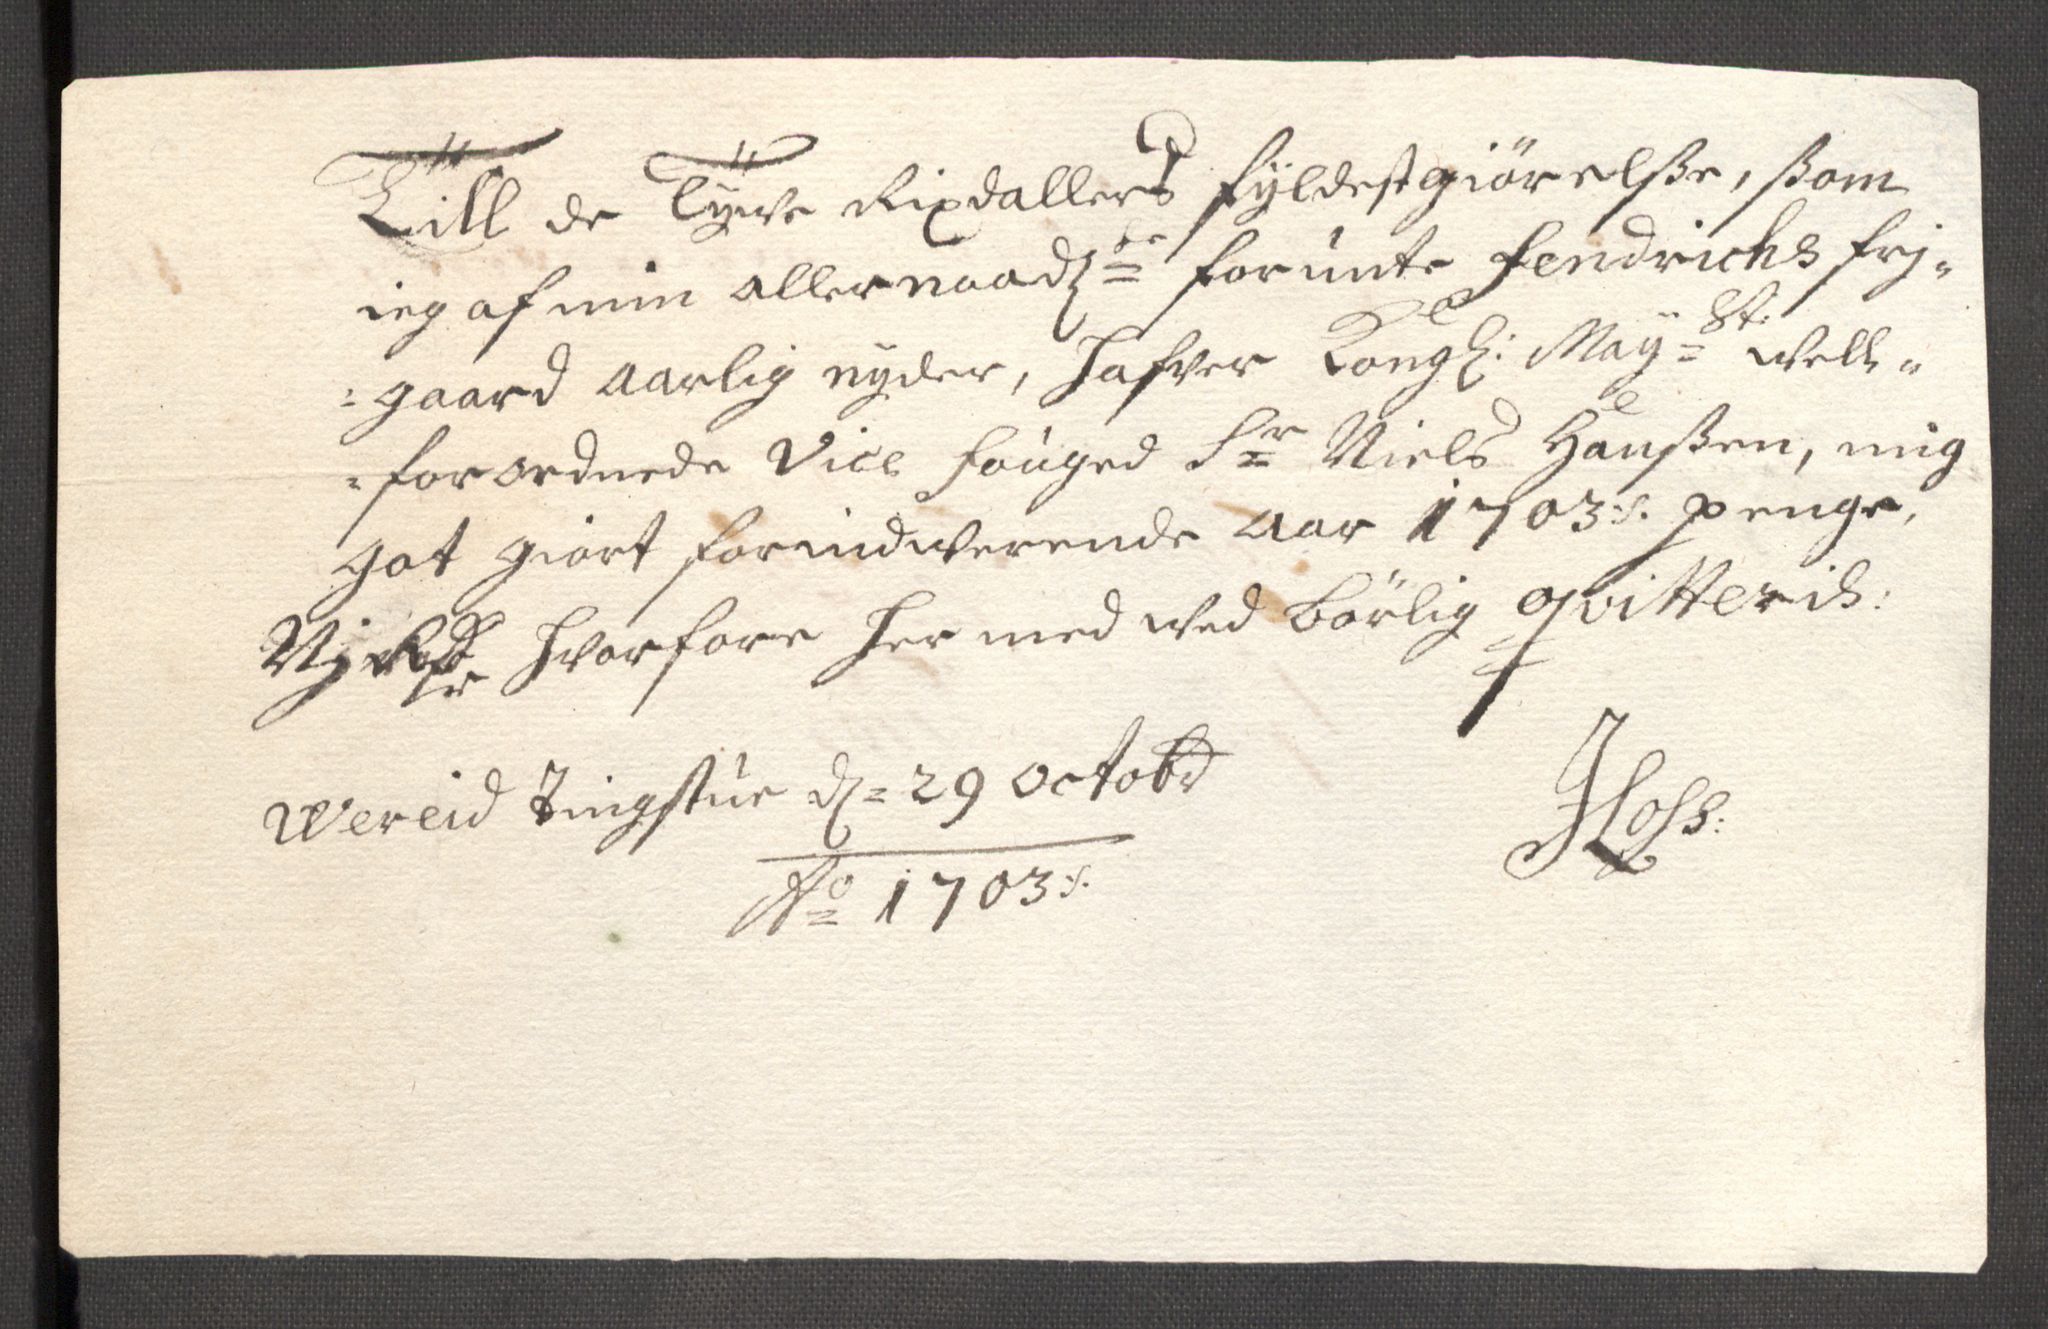 Till de Tÿve Rixdallers fÿldestgiörelsse, ssom
ieg af min allernaadgste forunte Fendrichs frj-
=gaard aarlig nyder, hafver Kongl: Maÿ=st: vell-
=forordnede Vice fouged Sr Niels Hanssen, mig
got giort for indverende Aar 1703:s. penge,
hvorfore her med ved börlig qvitteris:
Wereid Tingstue d= 29 Octobr
Ao 1703:s.